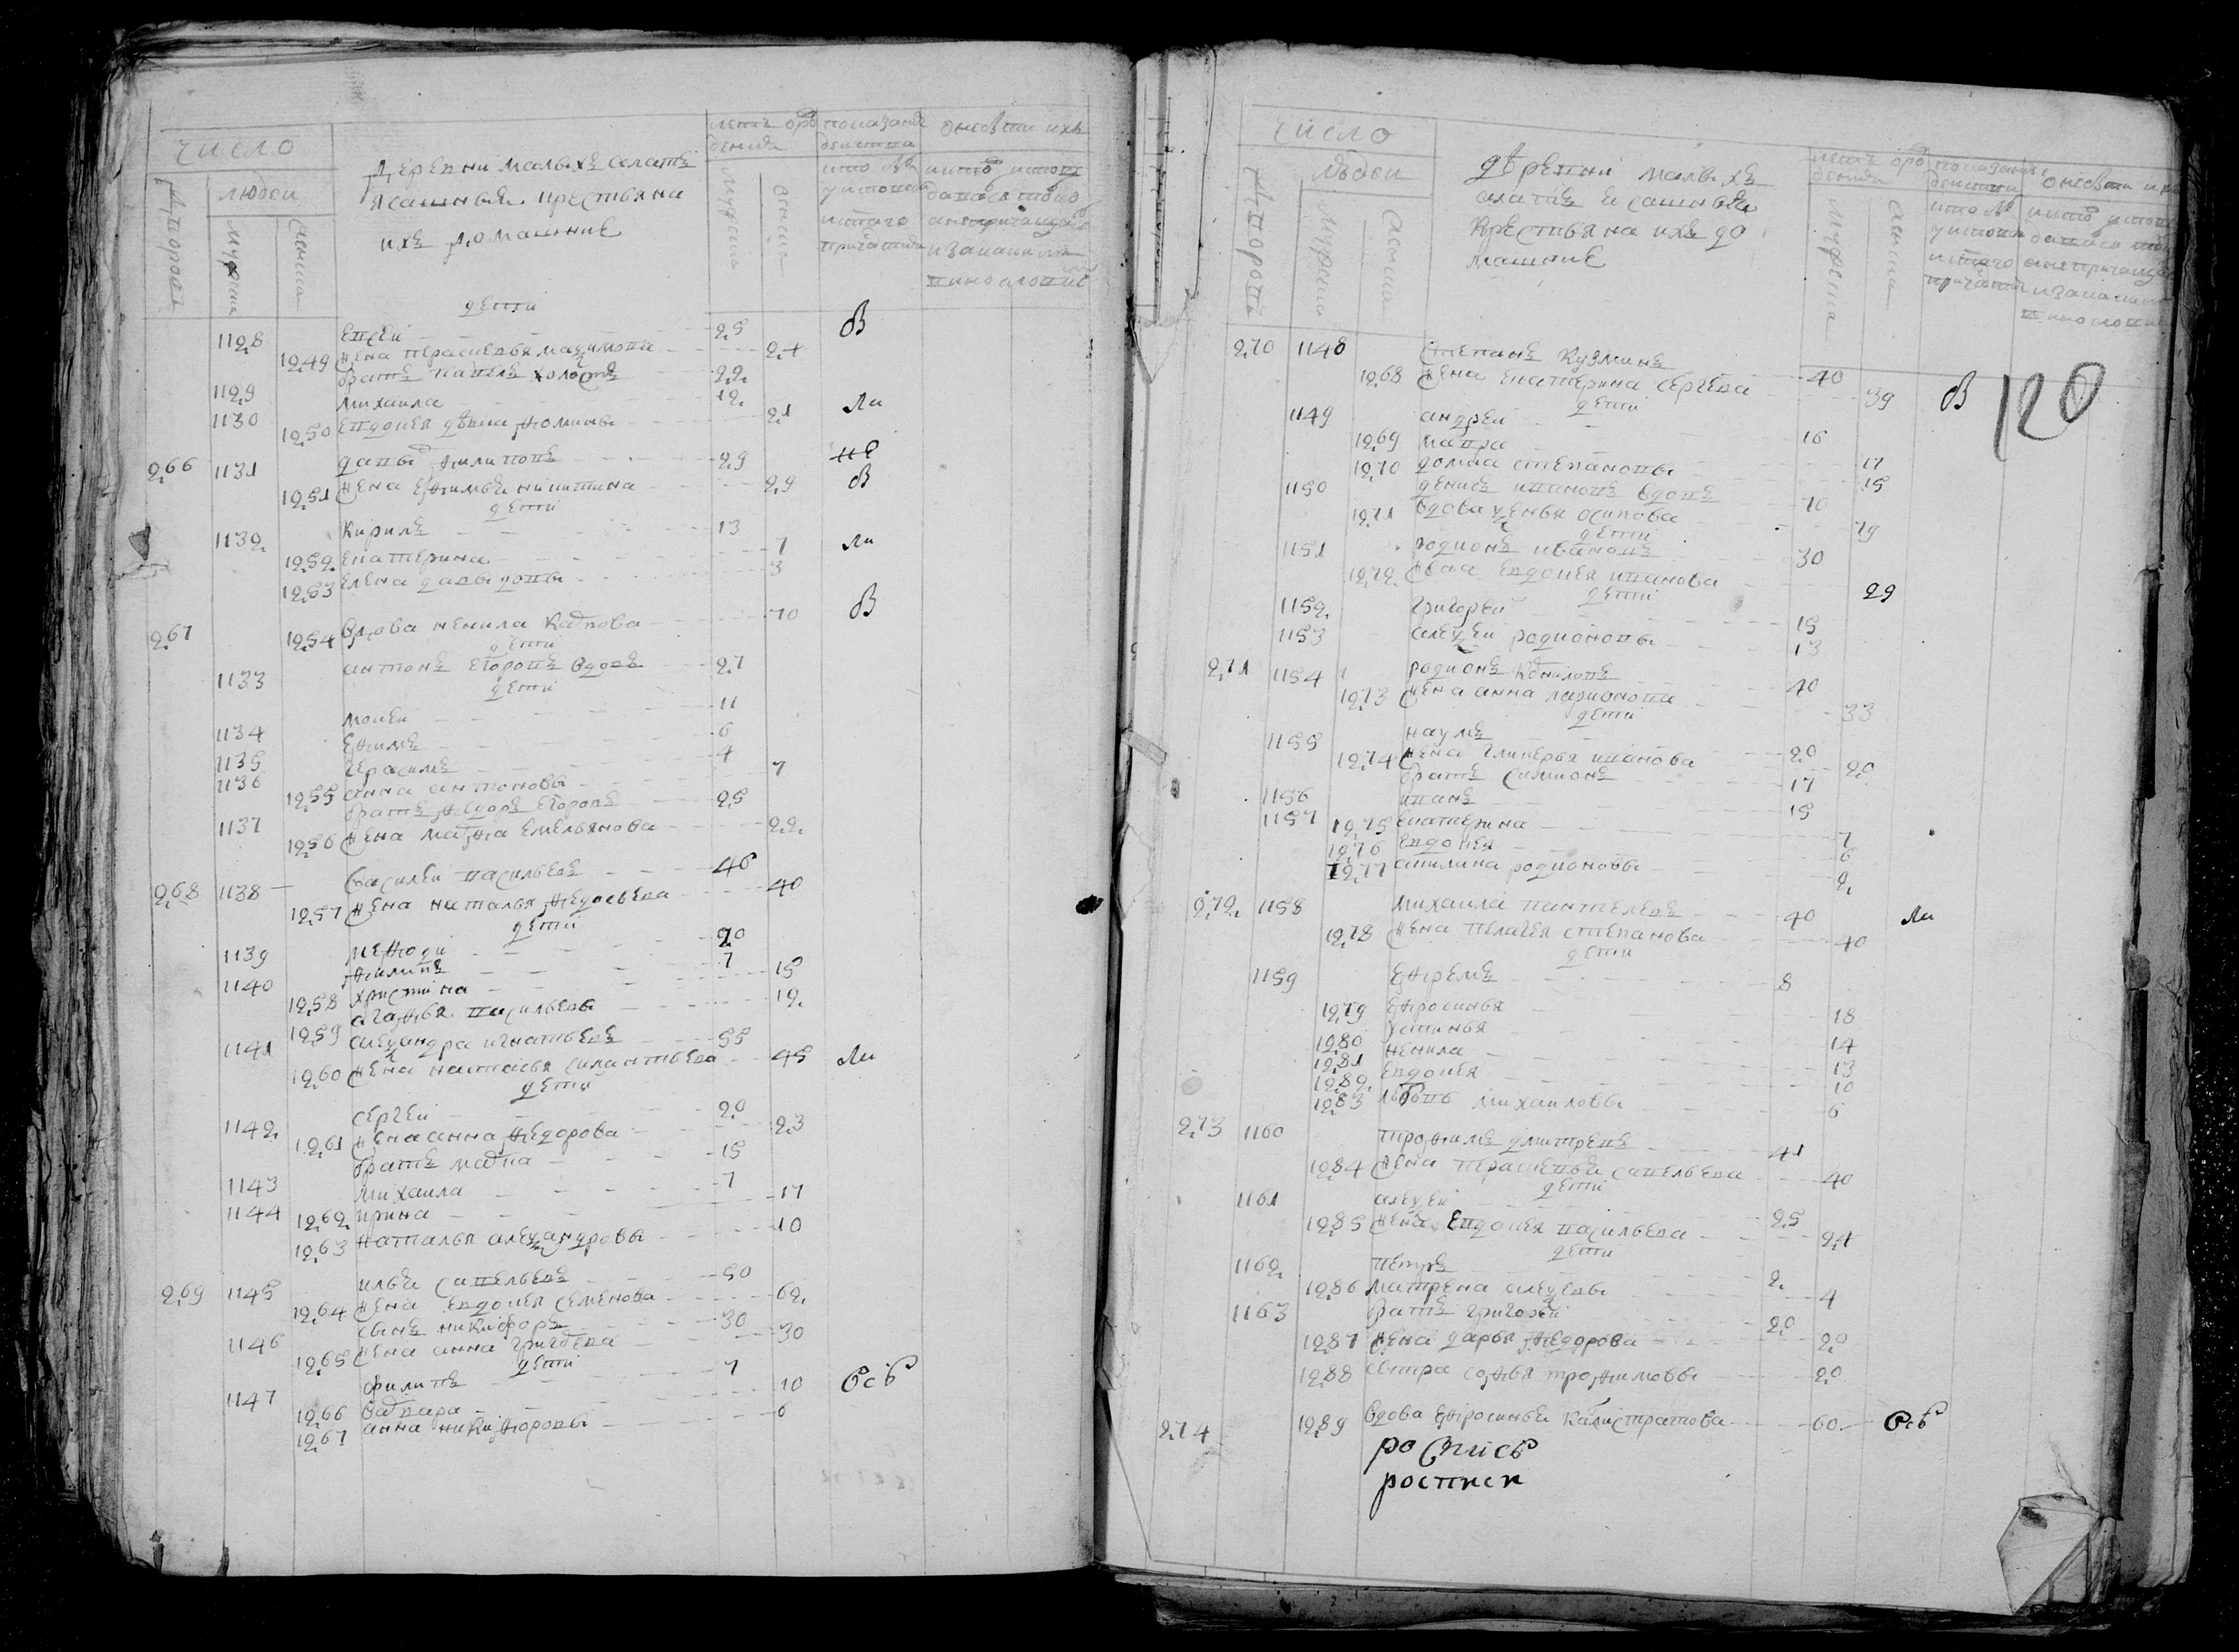 число
людеи
дворовъ
мужеска
женска
деревни малыхъ салатъ
ясашныя крестьяна
ихъ домашние
летъ оро
дения
мужеска
женска
показание
дети
1128 Евсеи 25 В
1249 жена перасковья мазимова 24
1129 братъ павелъ холостъ 22
1130 михаила 12
1250 Евдокея девка фомины 21 ли
266 1131 давыд филиповъ 29 не
1251 жена Ефимья никитина 29 В
дети
1132 Кирилъ 13
1252 Екатерина 7 ли
1253 Елена давыдовы 3
267 1254 вдова ненила Карпова 70 В
дети
1133 антонъ Егоровъ вдовъ 27
дети
1134 мокеи 11
1135 Ефимъ 6
1136 герасимъ 4
1255 анна антоновы 7
1137 братъ федоръ Егоровъ 25
1256 жена марфа Емельянова 22
268 1138 василеи васильевъ 46
1257 жена наталья федосьева 40
дети
1139 мефоди 20
1140 филипъ 7
1258 христина 15
1259 агафья васильевы 12
1141 алеξандра игнатьевъ 55
1260 жена настасья силантьева 45 ли
дети
1142 сергеи 20
1261 жена анна федорова 23
1143 братъ марка 15
1144 михаила 7
1262 ирина 17
1263 наталья алеξандровы 10
269 1145 илья савельевъ 50
1264 жена Евдокея семенова 62
1146 сынъ никифоръ 30
1265 жена анна григорева 30
дети
1147 филипъ 7
1266 варвара 10 Осъ
1267 анна никифоровы 6
число
людеи
дворовъ
мужеска
женска
деревни малыхъ
салатъ ясашныя
Крестьяна ихъ до
машние
летъ оро
дения
мужеска
женска
120
270 1148 степанъ Кузминъ 40
1268 жена Екатерина сергева 39 В
дети
1149 андреи 16
1269 мавра 17
1270 домна степановы 15
1150 денисъ ивановъ вдовъ 70
1271 вдова ξенья осипова 79
дети
1151 родионъ ивановъ 30
1272 жена Евдокея иванова 29
дети
1152 григореи 15
1153 алеξеи родионовы 13
271 1154 родионъ Корниловъ 40
1273 жена анна ларионова 33
дети
1155 наумъ 20
1274 жена гликерья иванова 20
1156 братъ симионъ 17
1157 иванъ 15
1275 Екатерина 7
1276 Евдокея 6
1277 акилина родионовы 2
272 1158 михаила пантелевъ 40 ли
1278 жена пелагея степанова 40
дети
1159 Ефремъ 8
1279 Ефросинья 18
1280 устинья 14
1281 ненила 13
1282 Евдокея 10
1283 любовь михаиловы 6
273 1160 трофимъ дмитревъ 41
1284 жена перасковья савельева 40
дети
1161 алеξеи 25
1285 жена Евдокея васильева 24
дети
1162 петръ 2
1286 матрена алеξевы 4
1163 братъ григореи 20
1287 жена дарья федорова 20
1288 сестра софья трофимовы 20
274 1289 вдова Ефросинья Калистратова 60 Осъ
роспись
росписи